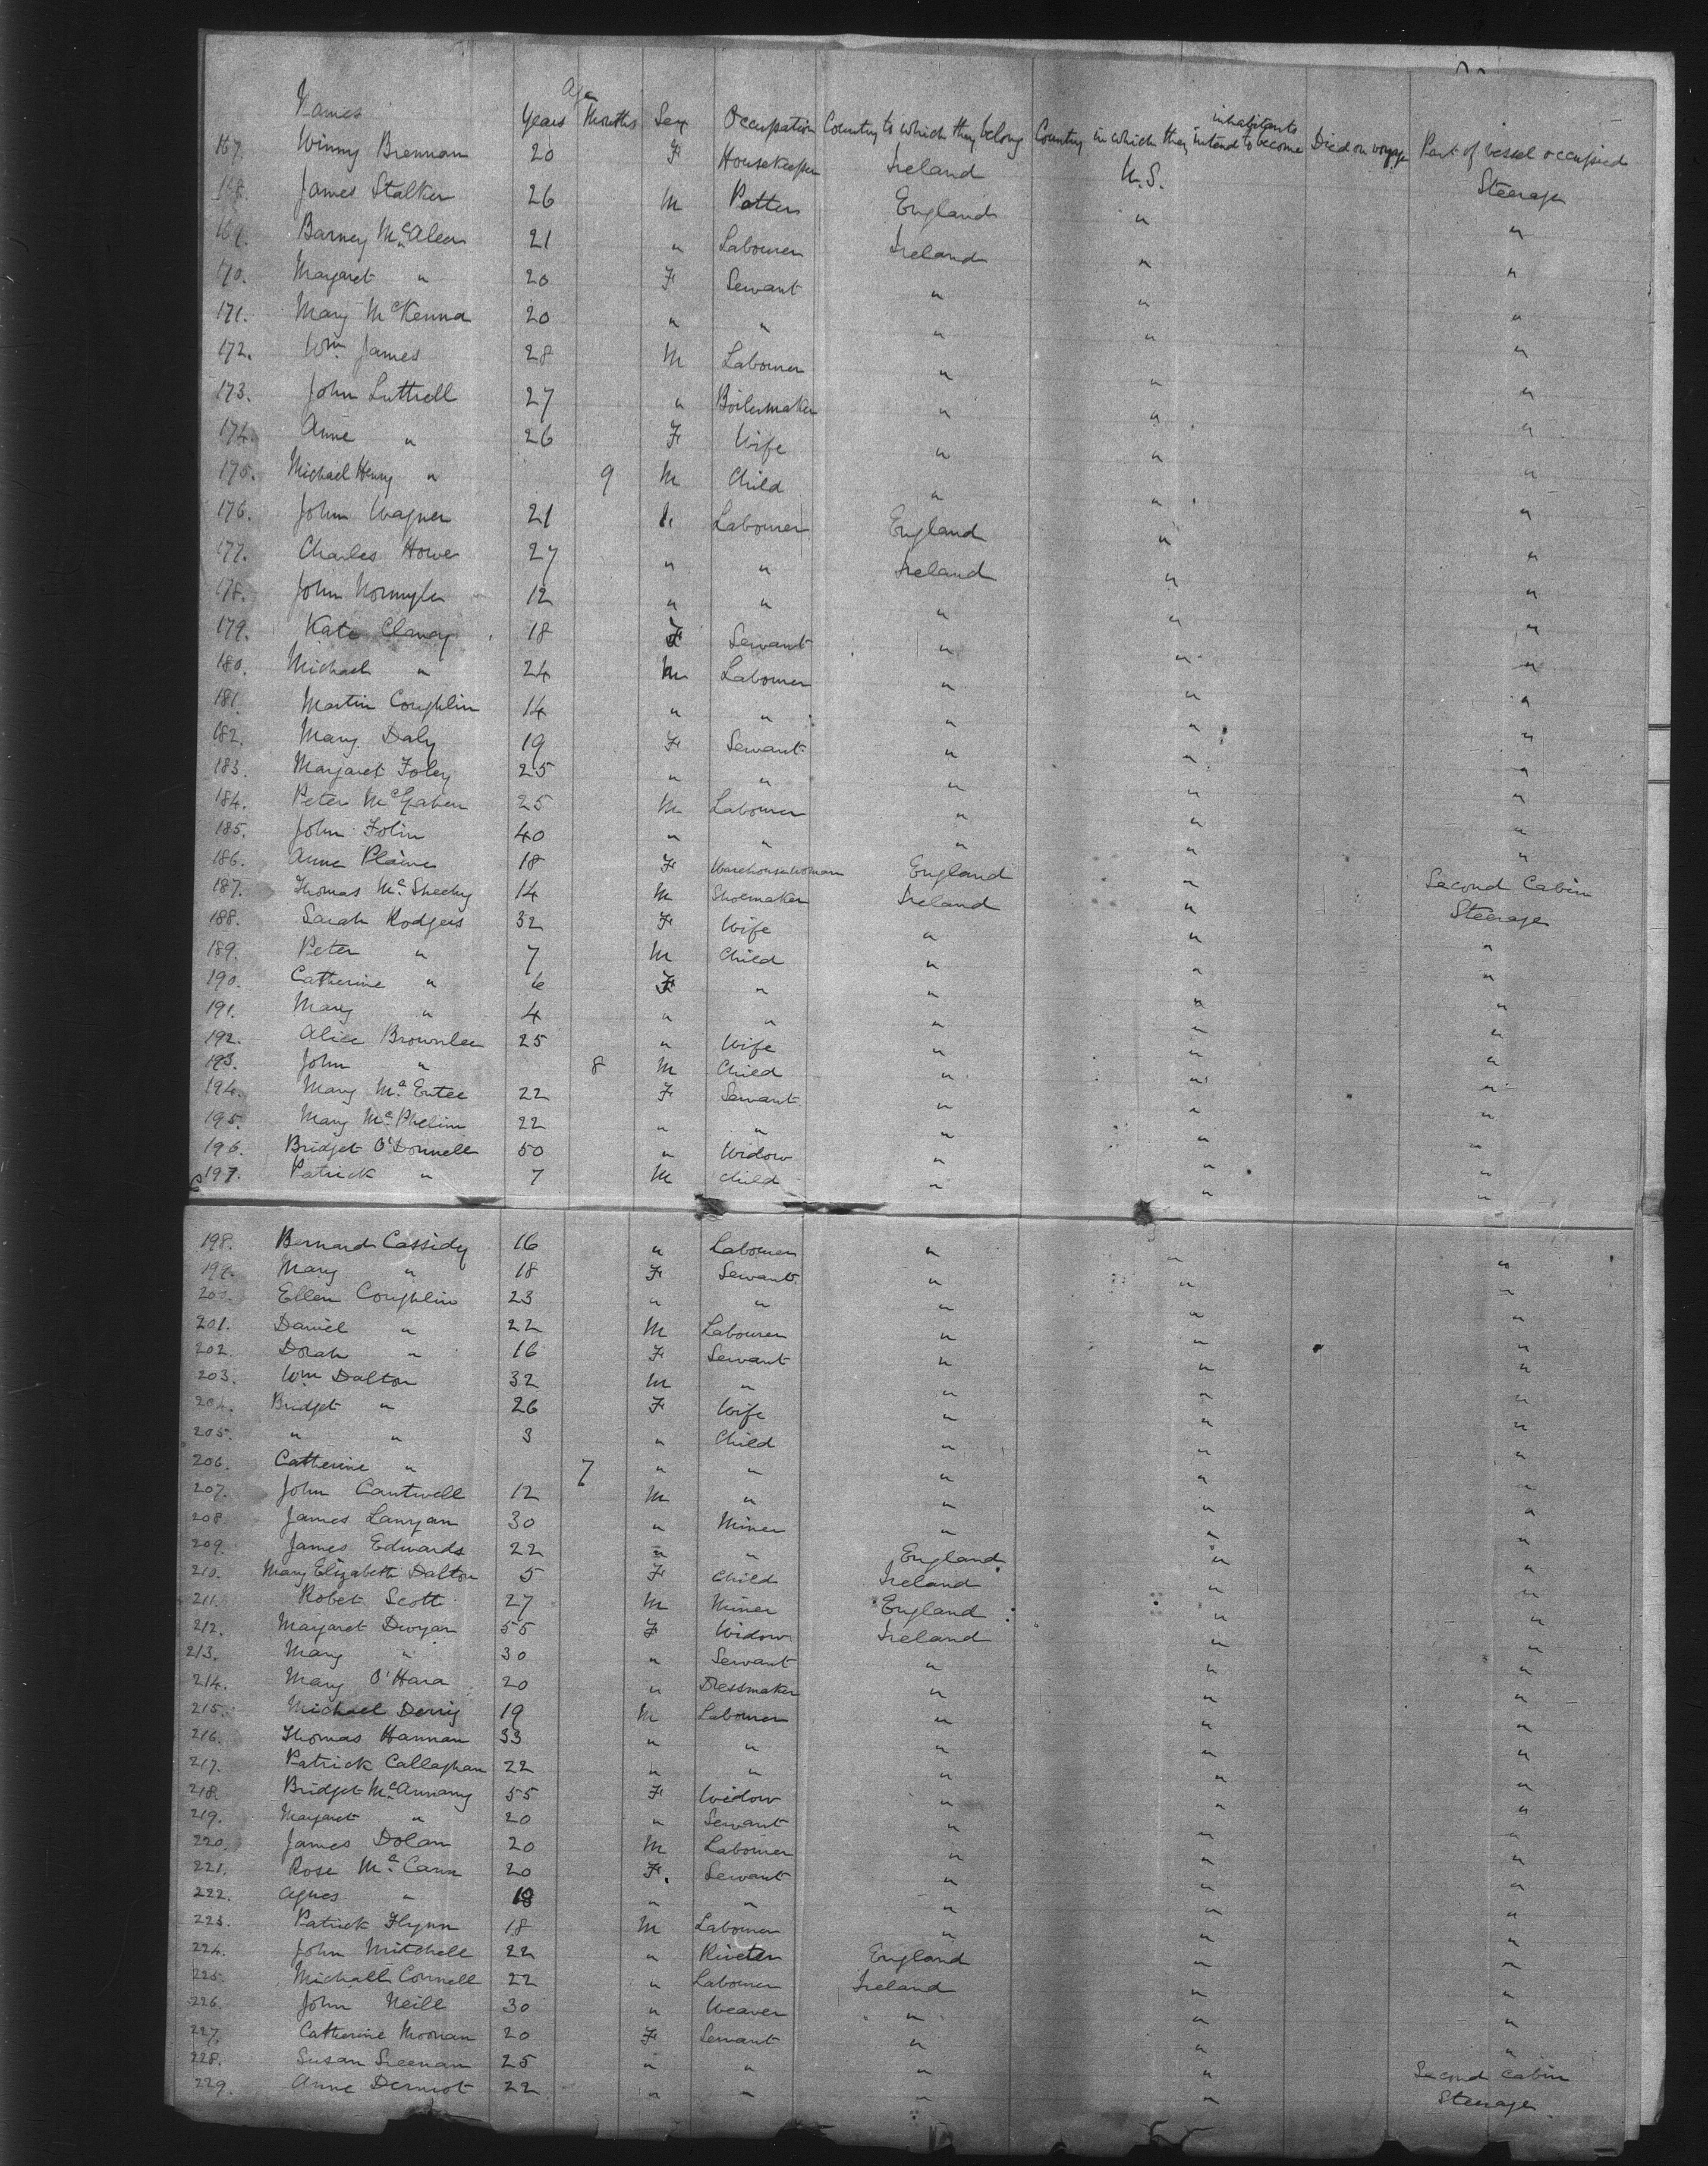 Names Age Years Months Sex Occupation Country to which they belong Country in which they intend to become inhabitants Died on voyage Part of vessel occupied
167. Winny Brennan 20 F Housekeeper Ireland U.S. Steerage
168. James Stalker 26 M Potter England " "
169. Barney McAleer 21 " Labourer Ireland " "
170. Margaret " 20 F Servant " " "
171. Mary McKenna 20 " " " " "
172. Wm James 28 M Labourer " " "
173. John Luttrell 27 " Boilermaker " " "
174. Anne " 26 F Wife " " "
175. Michael Henry " 9 M Child " " "
176. John Wagner 21 " Labourer England " "
177. Charles Howe 27 " " Ireland " "
178. John Normyle 12 " " " " "
179. Kate Clancy 18 F Servant " " "
180. Michael " 24 M Labourer " " "
181. Martin Coughlin 14 " " " " "
182. Mary Daly 19 F Servant " " "
183. Margaret Foley 25 " " " " "
184. Peter 25 M Labourer " " "
185. John 40 " " " " "
186. Anne 18 F Warehousewoman England " Second Cabin
187. Thomas McSheehy 14 M Shoemaker Ireland " Steerage
188. Sarah Rodgers 32 F Wife " " "
189. Peter " 7 M Child " " "
190. Catherine " 6 F " " " "
191. Mary " 4 " " " " "
192. Alice Brownlee 25 " Wife " " "
193. John " 8 M Child " " "
194. Mary McEntee 22 F Servant " " "
195. Mary McPhelim 22 " " " " "
196. Bridget O'Donnell 50 " Widow " " "
197. Patrick " 7 M Child " " "
198. Bernard Cassidy 16 " Labourer " " "
199. Mary " 18 F Servant " " "
200. Ellen Coughlin 23 " " " " "
201. Daniel " 22 M Labourer " " "
202. Dorah " 16 F Servant " " "
203. Wm Dalton 32 M " " " "
204. Bridget " 26 F Wife " " "
205. " " 3 " Child " " "
206. Catherine " 7 " " " " "
207. John Cantwell 12 M " " " "
208. James Lanyan 30 " Miner " " "
209. James Edwards 22 " " England " "
210. Mary Elizabeth Dalton 5 F Child Ireland " "
211. Robet Scott 27 M Miner England " "
212. Margaret Dwyar 55 F Widow Ireland " "
213. Mary " 30 " Servant " " "
214. Mary O'Hara 20 " Dressmaker " " "
215. Michael Derrig 19 M Labourer " " "
216. Thomas Hannan 33 " " " " "
217. Patrick Callaghan 22 " " " " "
218. Bridget McAnnany 55 F Widow " " "
219. Margaret " 20 " Servant " " "
220. James Dolan 20 M Labourer " " "
221. Rose McCann 20 F. Servant " " "
222. Agnes " 18 " " " " "
223. Patrick Flynn 18 M Labourer " " "
224. John Mitchell 22 " Riveter England " "
225. Michall Connell 22 " Labourer Ireland " "
226. John Neill 30 " Weaver " " "
227. Catherine Moonan 20 F Servant " " "
228. Susan 25 " " " " Second Cabin
229. Anne Dermot 22 " " " " Steerage